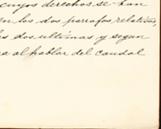 cuyos derechos se han
en los dos parrafos relativos
los dos ultimas y segun
al hablar del caudal